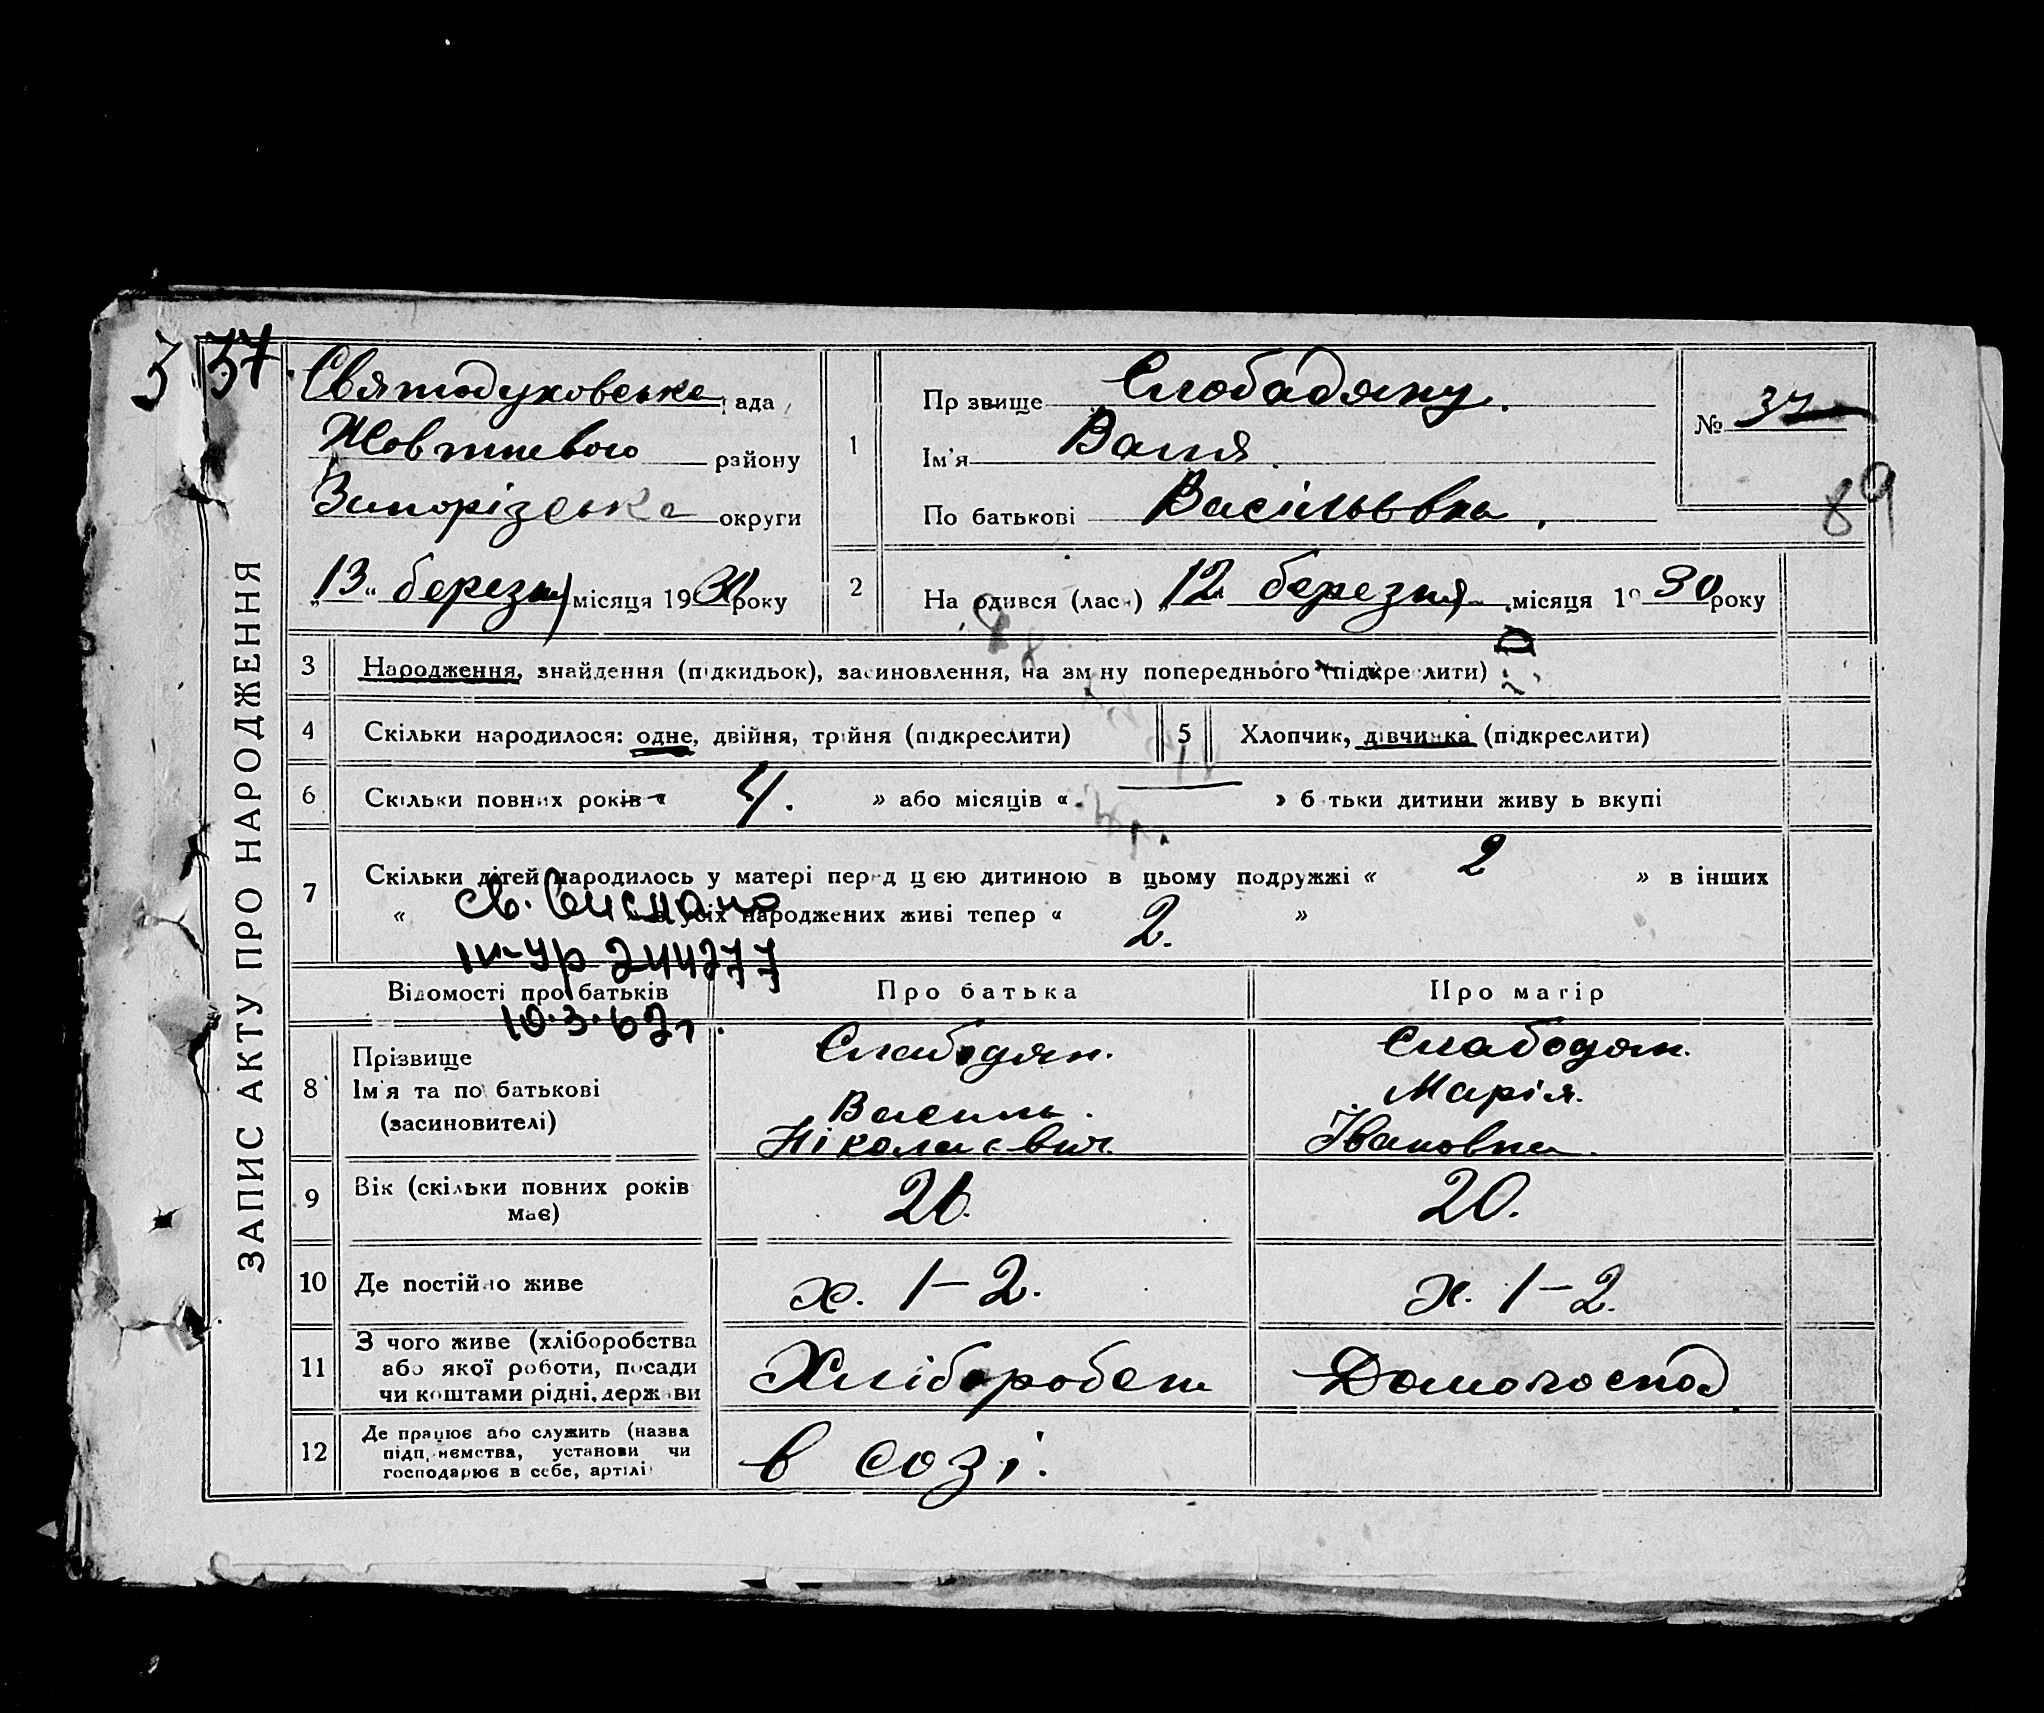 ЗАПИС АКТУ ПРО НАРОДЖЕННЯ
3 37.
Святодуховська рада
Жовтневого району
Запорізька округи
„13“ березня місяця 1930 року
1
Прізвище Слободяну.
Ім'я Валя
По батькові Васільєвна.
№ 37
89
2
Народився (лась) „12 березня місяця 1930 року
3 Народження, знайдення (підкидьок), засиновлення, на зміну попереднього (підкреслити)
4 Скільки народилося: одне, двійня, трійня (підкреслити)
5 Хлопчик, дівчинка (підкреслити)
6 Скільки повних років « 4. » або місяців « — » батьки дитини живуть вкупі
7 Скільки дітей народилось у матері перед цією дитиною в цьому подружжі « 2 » в інших
« з усіх народжених живі тепер « 2. »
св. выслано
244277
10.3.62г.
Відомості про батьків
Про батька
Про матір
8
Прізвище
Ім'я та по батькові
(засиновителі)
Слабодян.
Василь.
Ніколаєвич.
Слабодян.
Марія.
Івановна.
9 Вік (скільки повних років має)
26.
20.
10 Де постійно живе
х. 1–2.
х. 1–2.
11
З чого живе (хліборобства
або якої роботи, посади
чи коштами рідні, держави
Хлібороб
Домогоспод
12
Де працює або служить (назва
підприємства, установи чи
господарює в себе, артілі
в созі.